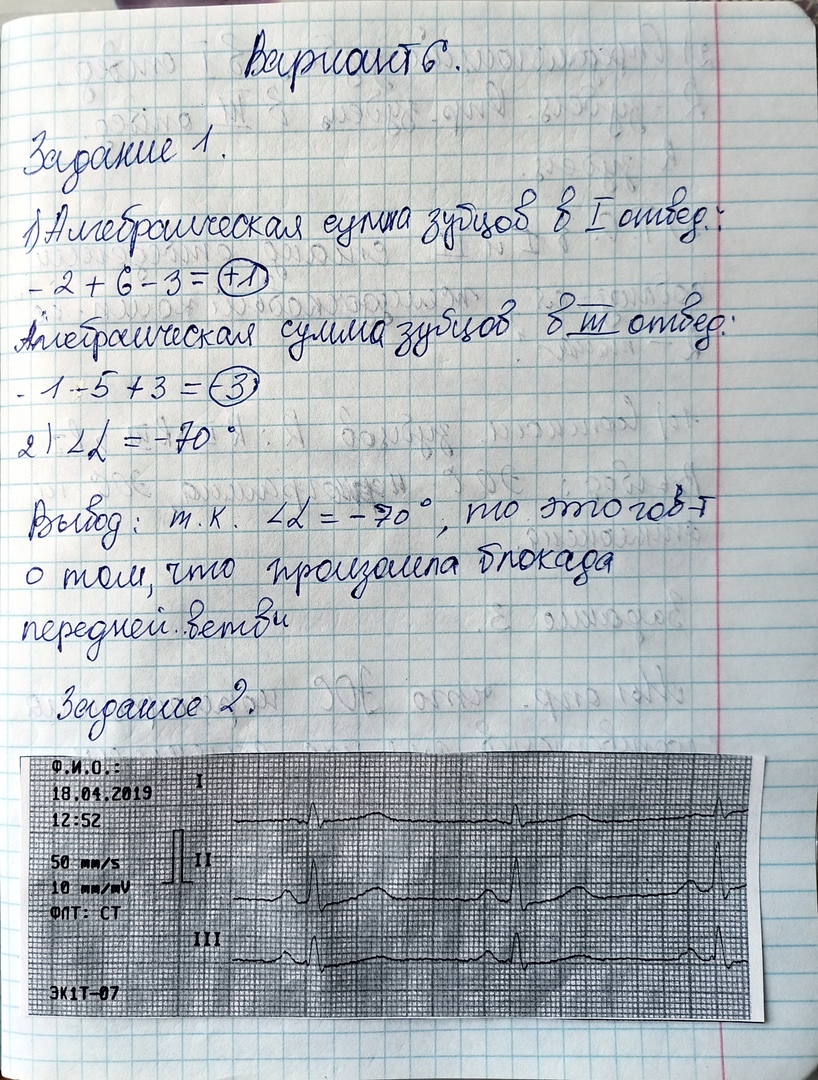 Вариант 6.
Задание 1.
1) Алгебраическая сумма зубцов в I отвед.:
- 2 + 6 - 3 = +1
Алгебраическая сумма зубцов в III отвед:
- 1 - 5 + 3 = -3
2) ∠α = -70°
Вывод: т.к. ∠α = -70°, то это гов-т
о том, что произошла блокада
передней ветви
Задание 2.
Ф.И.О.:
18.04.2019
12:52
50 mm/s
10 mm/mV
ФЛТ: СТ
ЭК1Т-07
I
II
III